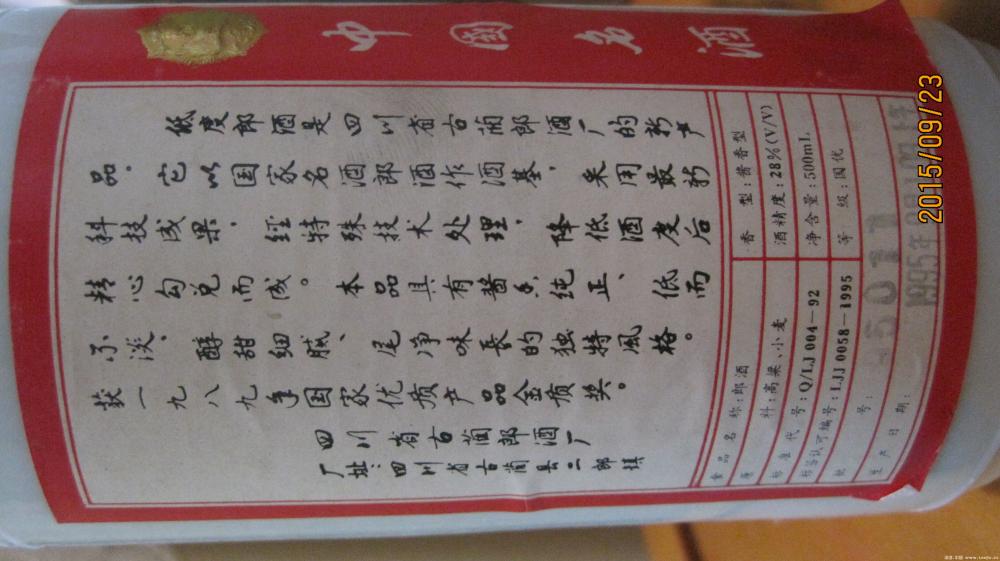 中國名酒
低度郎酒是四川省古蔺郎酒厂的新产
品。它以国家名酒郎酒作酒基，采用最新
科技成果，经特殊技术处理，降低酒度后
精心勾兑而成。本品具有酱香纯正、低而
不淡、醇甜细腻、尾净味長的独特風格。
获一九八九年国家优质产品金质奖。
四川省古蔺郎酒厂
厂址：四川省古蔺县二郎镇
食品名称：郎酒
香型：酱香型
原料：高粱、小麦
酒精度：28%(V/V)
标准代号：Q/LJ 004－92
净含量：500mL
标签认可编号：LJJ 0058－1995
等级：国优
批号：
生产日期：1995年
2015/09/23